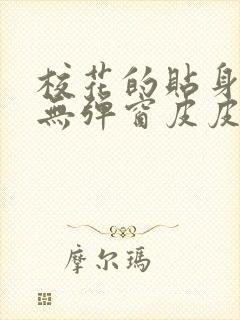 校花的貼身
無彈窗皮皮
摩尔瑪